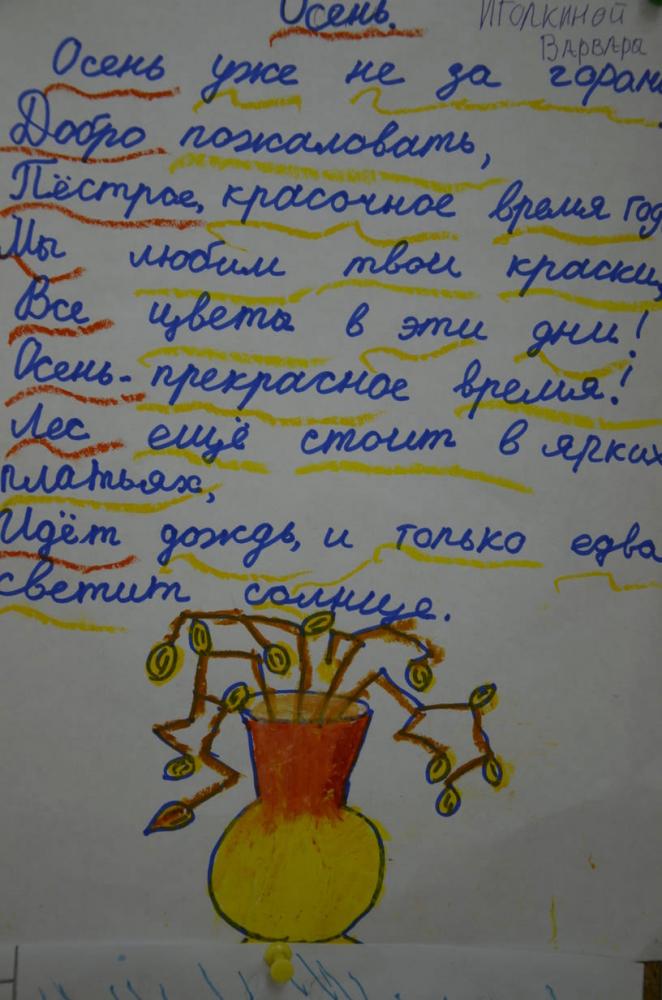 Осень.
Иголкиной
Варвара
Осень уже не за горами
Добро пожаловать,
Пёстрое, красочное время год
Мы любим твои краски,
Все цвета в эти дни!
Осень - прекрасное время!
Лес ещё стоит в ярких
платьях,
Идёт дождь, и только едва
светит солнце.